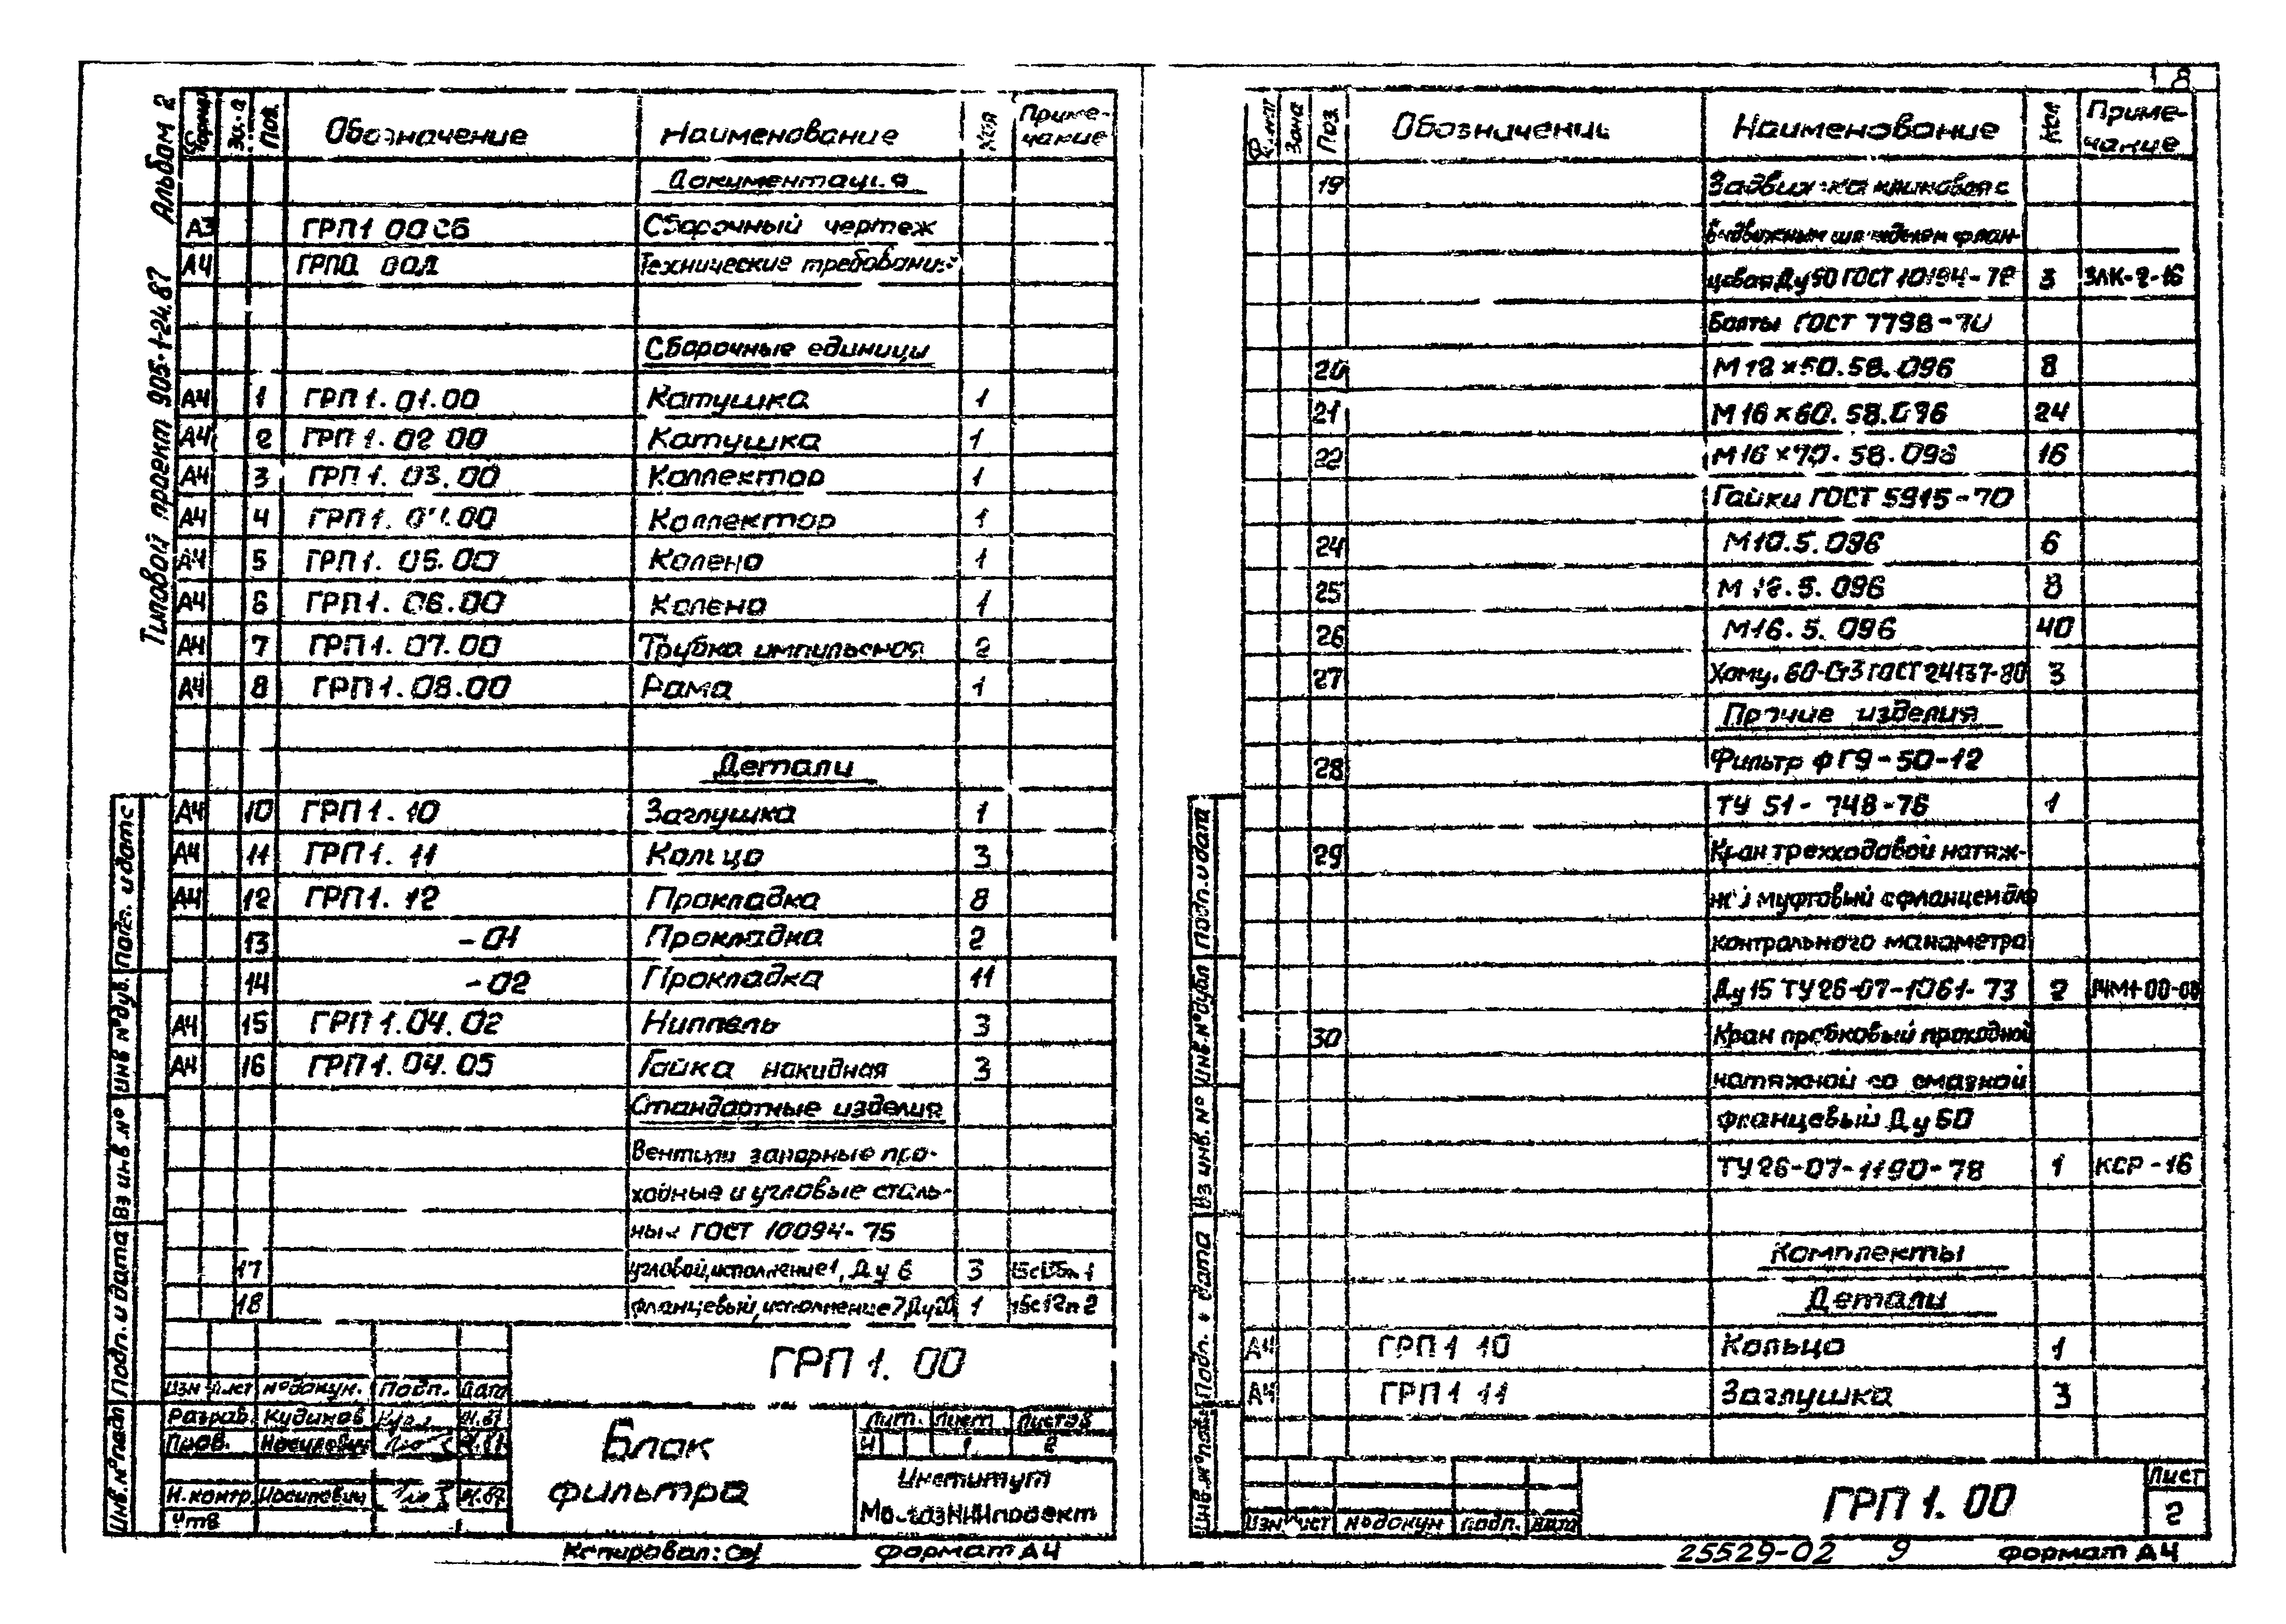 8
Альбом 2
Типовой проект 905-1-24.87
Формат Зона Поз. Обозначение Наименование Кол Примечание
Документация
А3 ГРП1 00СБ Сборочный чертеж
А4 Технические требования
Сборочные единицы
А4 1 ГРП1.01.00 Катушка 1
А4 2 ГРП1.02 00 Катушка 1
А4 3 ГРП1.03.00 Коллектор 1
А4 4 ГРП1.04.00 Коллектор 1
А4 5 ГРП1.05.00 Колено 1
А4 6 ГРП1.06.00 Колено 1
А4 7 ГРП1.07.00 Трубка импульсная 2
А4 8 ГРП1.08.00 Рама 1
Детали
А4 10 ГРП1.10 Заглушка 1
А4 11 ГРП1.11 Кольцо 3
А4 12 ГРП1.12 Прокладка 8
13 -01 Прокладка 2
14 -02 Прокладка 11
А4 15 ГРП1.04.02 Ниппель 3
А4 16 ГРП1.04.05 Гайка накидная 3
Стандартные изделия
Вентили запорные про-
ходные и угловые сталь-
ные ГОСТ 10094-75
17 угловой, исполнение 1, Ду 6 3
18 фланцевый, исполнение 7, Ду20 1
ГРП 1.00
Изм Лист № докум. Подп. Дата
Разраб. Кудинов 01.87
Пров. Иосилевич
Н.контр. Иосилевич 01.87
Утв
Блок
фильтра
Лит. Лист Листов
И 1 2
Институт
МосгазНИИпроект
Копировал: Формат А4
Инв.№ подл Подп. и дата Вз инв.№ Инв №дубл. Подп. и дата
Формат Зона Поз. Обозначение Наименование Кол Примечание
19 Задвижка клиновая с
выдвижным шпинделем флан-
цевая Ду50 ГОСТ 10194-78 3 ЗЛК-2-16
Болты ГОСТ 7798-70
20 М12×50.58.096 8
21 М16×60.58.096 24
22 М16×70.58.096 16
Гайки ГОСТ 5915-70
24 М10.5.096 6
25 М12.5.096 8
26 М16.5.096 40
27 Хомут 60-Ст3 ГОСТ 24137-80 3
Прочие изделия
28 Фильтр ФГ9-50-12
ТУ 51-748-76 1
29 Кран трехходовой натяж-
ной муфтовый с фланцем для
контрольного манометра
Ду15 ТУ26-07-1061-73 2
30 Кран пробковый проходной
натяжной со смазкой
фланцевый Ду 50
ТУ26-07-1190-78 1 КСР-16
Комплекты
Детали
А4 ГРП1 10 Кольцо 1
А4 ГРП1 11 Заглушка 3
Изм Лист № докум Подп. Дата
ГРП 1.00
Лист
2
Инв.№ подл Подп. и дата Вз инв.№ Инв.№дубл Подп. и дата
25529-02 9 Формат А4